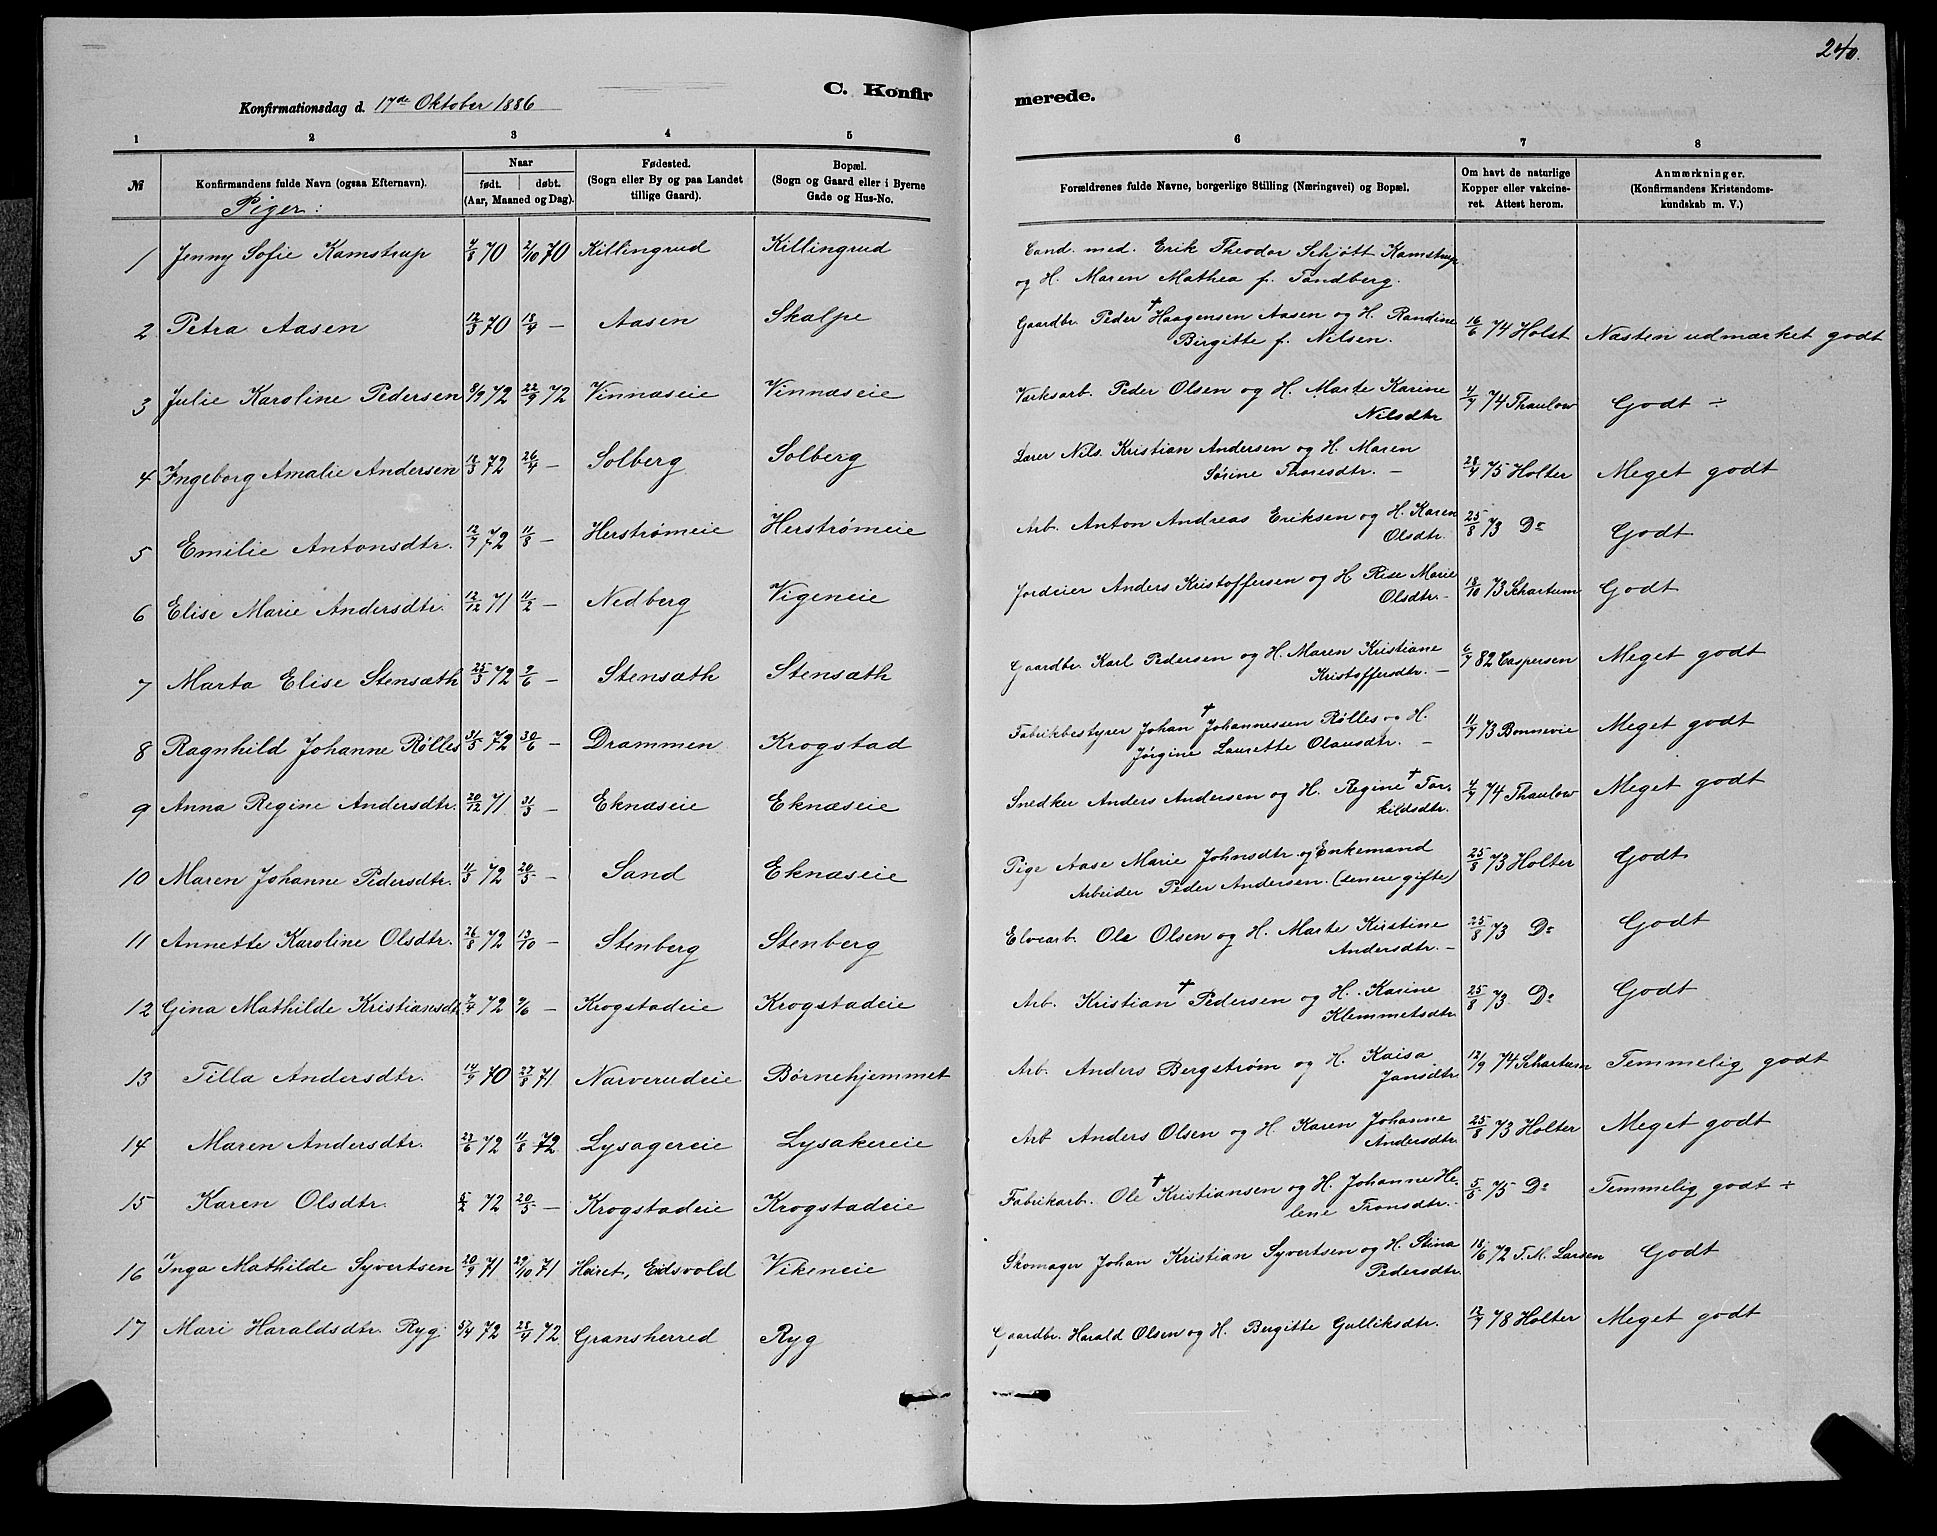 240.
C. Konfirmerede.
Konfirmationsdag d. 17de Oktober 1886
1 2 3 4 5 6 7 8
№ Konfirmandens fulde Navn (ogsaa Efternavn). Naar født. døbt. (Aar, Maaned og Dag). Fødested. (Sogn eller By og paa Landet tillige Gaard). Bopæl. (Sogn og Gaard eller i Byerne Gade og Hus-No. Forældrenes fulde Navne, borgerlige Stilling (Næringsvei) og Bopæl. Om havt de naturlige Kopper eller vakcineret. Attest herom. Anmærkninger. (Konfirmandens Kristendomskundskab m. V.)
Piger:
1 Jenny Sofie Kamstrup 4/8 70 2/10 70 Killingrud Killingrud Cand. med. Erik Theodor Schjøtt Kamstrup
og H. Maren Mathea f. Tandberg.
2 Petra Aasen 12/3 70 18/4 — Aasen Skalpe Gaardbr. Peder † Haagensen Aasen og H. Randine 16/6 74 Holst Næsten udmærket godt
Birgitte f. Nilsen.
3 Julie Karoline Pedersen 8/9 72 22/9 72 Vinnæseie Vinnæseie Værksarb. Peder Olsen og H. Marte Karine 4/7 74 Thaulow Godt ÷
Nilsdtr
4 Ingeborg Amalie Andersen 12/3 72 26/4 — Solberg Solberg Lærer Nils Kristian Andersen og H. Maren 28/4 75 Holter Meget godt
Sørine Thoresdtr. —
5 Emilie Antonsdtr. 12/7 72 11/8 — Herstrømeie Herstrømeie Arb. Anton Andreas Eriksen og H. Karen 25/8 73 Do Godt
Olsdtr.
6 Elise Marie Andersdtr. 12/12 71 11/2 — Nedberg Vigeneie Jordeier Anders Kristoffersen og H. Rise Marie 18/10 73 Schartum Godt
Olsdtr. —
7 Marta Elise Stensæth 25/3 72 2/6 — Stensæth Stensæth Gaardbr. Karl Pedersen og H. Maren Kristiane 6/7 82 Caspersen Meget godt
Kristoffersdtr. —
8 Ragnhild Johanne Rølles 31/5 72 30/6 — Drammen Krogstad Fabrikbestyrer Johan † Johannessen Rølles og H. 11/7 73 Bonnevie Meget godt
Jørgine Laurette Olausdtr. —
9 Anna Regine Andersdtr. 20/12 71 31/3 — Eknæseie Eknæseie Snedker Anders Andersen og H. Regine † Tor- 4/7 74 Thaulow Meget godt
kildsdtr.
10 Maren Johanne Pedersdtr. 11/3 72 20/5 — Sand Eknæseie Pige Aase Marie Johnsdtr. og Enkemand 25/8 73 Holter Godt
Arbeider Peder Andersen. (senere gifte)
11 Annette Karoline Olsdtr. 26/8 72 13/10 — Stenberg Stenberg Elvearb. Ole Olsen og H. Marte Kirstine 25/8 73 Do Godt
Andersdtr. —
12 Gina Mathilde Kristiansdtr 7/4 72 9/6 — Krogstadeie Krogstadeie Arb. Kristian † Pedersen og H. Karine 25/8 73 Do Godt
Klemmetsdtr.
13 Tilla Andersdtr. 14/9 70 27/8 71 Narverudeie Børnehjemmet Arb. Anders Bergstrøm og H. Kaisa 12/9 74 Schartum Temmelig godt
Jansdtr
14 Maren Andersdtr. 23/6 72 11/8 72 Lysagereie Lysakereie Arb Anders Olsen og H. Karen Johanne 25/8 73 Holter Meget godt
Andersdtr.
15 Karen Olsdtr. 5/2 72 20/5 — Krogstadeie Krogstadeie Fabrikarb. Ole † Kristiansen og H. Johanne He- 5/5 75 Do Temmelig godt ÷
lene Tronsdtr. —
16 Inga Mathilde Syvertsen 20/9 71 29/10 71 Høiret, Eidsvold Vikeneie Skomager Johan Kristian Syvertsen og H. Stina 18/6 72 T. M. Larsen Godt
Pedersdtr.
17 Mari Haraldsdtr. Ryg 5/4 72 28/4 72 Gransherred Ryg Gaardbr. Harald Olsen og H. Bergitte Gulliksdtr. 12/7 78 Holter Meget godt